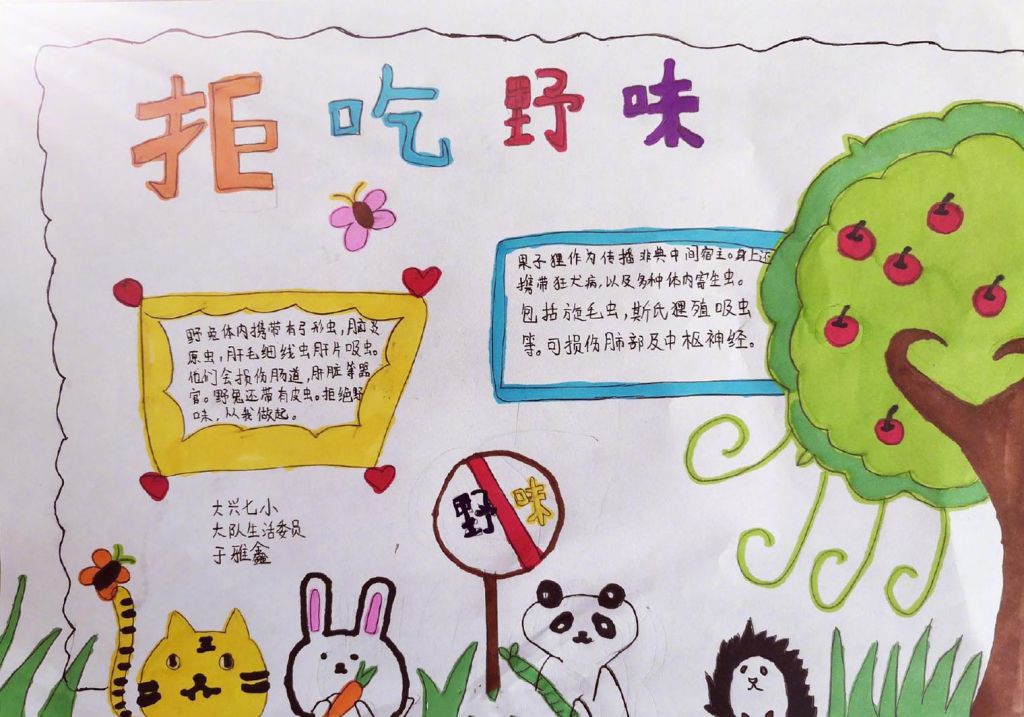 拒吃野味
果子狸作为传播非典中间宿主。身上还
携带狂犬病，以及多种体内寄生虫。
包括旋毛虫，斯氏狸殖吸虫
等。可损伤肺部及中枢神经。
野兔体内携带有弓形虫，脑炎
原虫，肝毛细线虫肝片吸虫。
他们会损伤肠道，肝脏等器
官。野兔还带有皮虫。拒绝野
味，从我做起。
大兴七小
大队生活委员
于雅鑫
野味